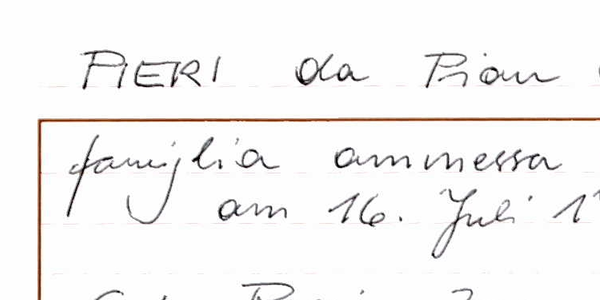 PIERI da Pian
famiglia ammessa
am 16. Juli